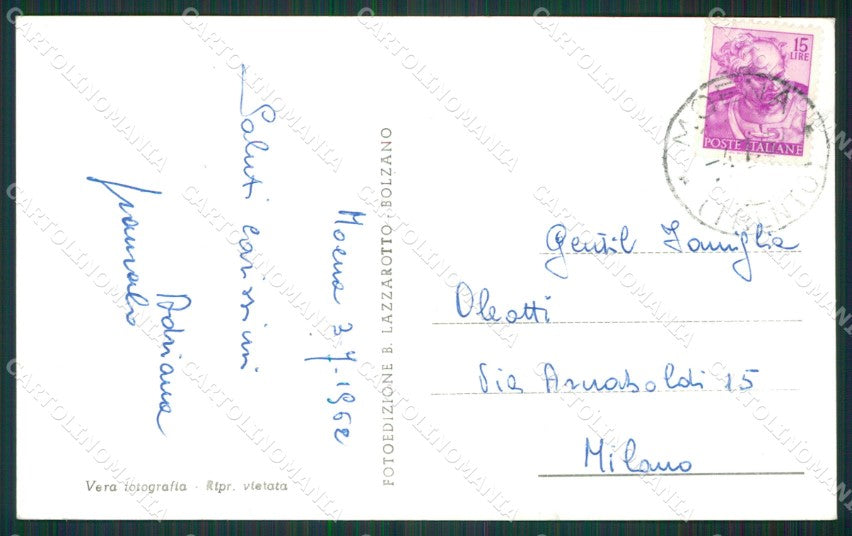 Moena 3-7-1962
Saluti carissimi
Adriana
FOTOEDIZIONE B. LAZZAROTTO - BOLZANO
Vera fotografia - Ripr. vietata
15
LIRE
POSTE ITALIANE
MOENA
Gentil Famiglia
Oleotti
Via Arnaboldi 15
Milano
CARTOLINOMANIA